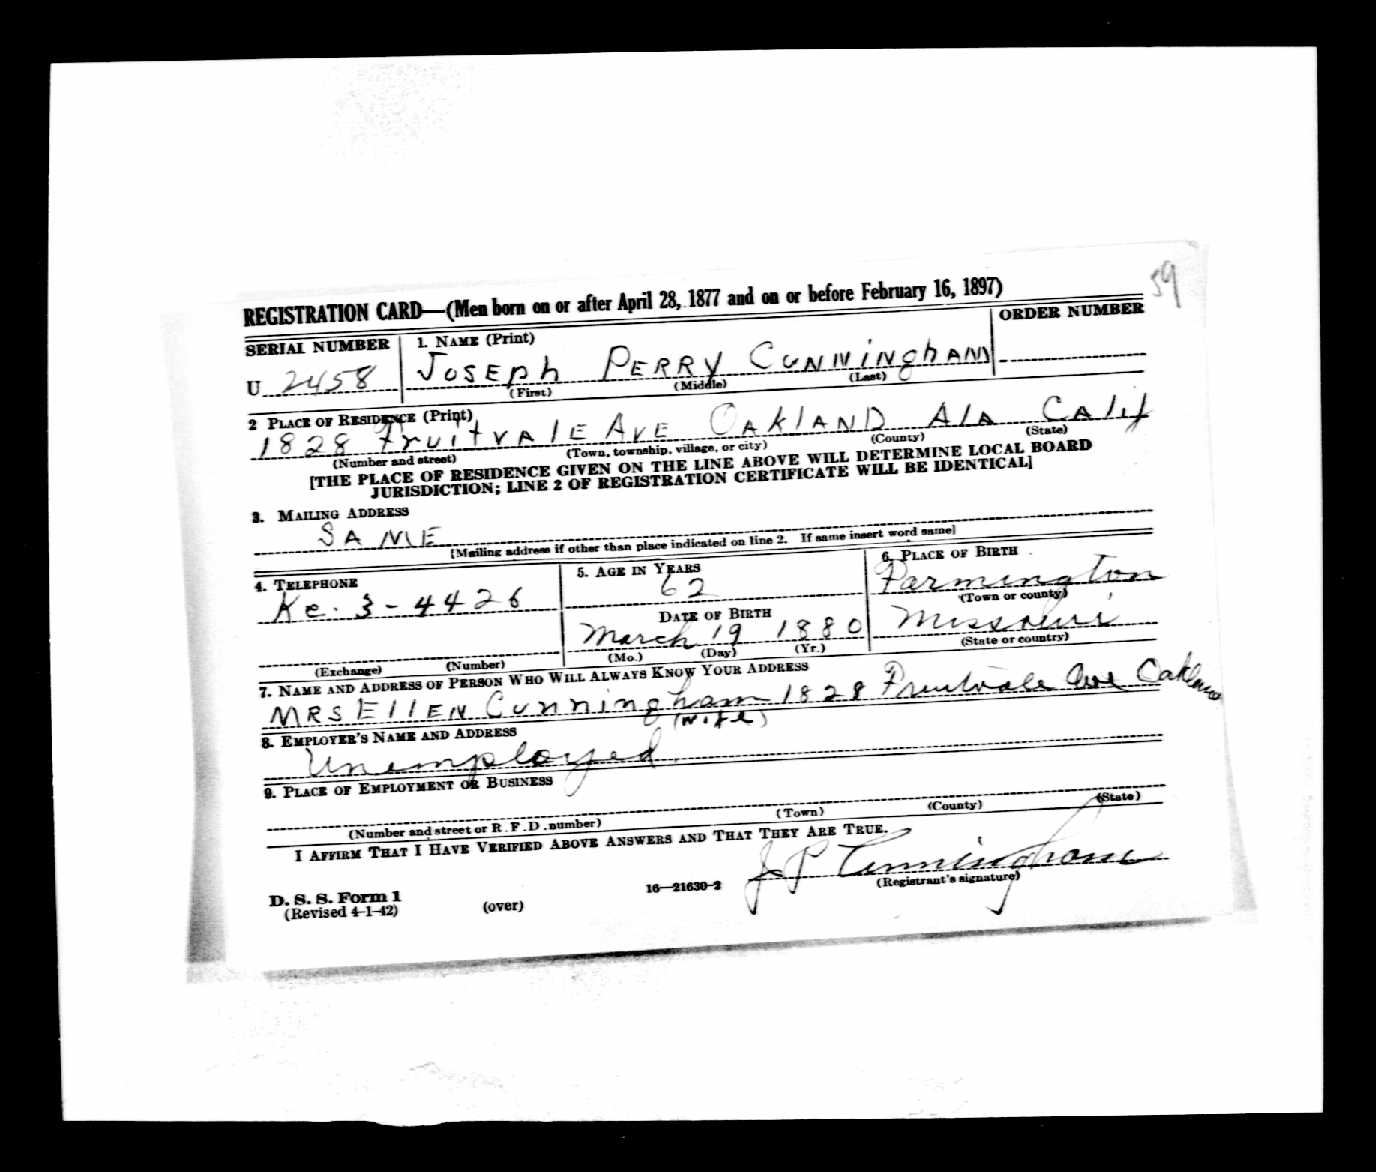 59
REGISTRATION CARD—(Men born on or after April 28, 1877 and on or before February 16, 1897)
SERIAL NUMBER 1. NAME (Print) ORDER NUMBER
U 2458 JOSEPH PERRY CUNNINGhAM
(First) (Middle) (Last)
2 PLACE OF RESIDENCE (Print)
1828 FruitvAlE AVE OAKlAND AlA CAlif
(Number and street) (Town, township, village, or city) (County) (State)
[THE PLACE OF RESIDENCE GIVEN ON THE LINE ABOVE WILL DETERMINE LOCAL BOARD
JURISDICTION; LINE 2 OF REGISTRATION CERTIFICATE WILL BE IDENTICAL]
3. MAILING ADDRESS
SAME
[Mailing address if other than place indicated on line 2. If same insert word same]
4. TELEPHONE 5. AGE IN YEARS 6. PLACE OF BIRTH
Ke. 3-4426 62 Farmington
(Town or county)
DATE OF BIRTH
March 19 1880 Missouri
(Exchange) (Number) (Mo.) (Day) (Yr.) (State or country)
7. NAME AND ADDRESS OF PERSON WHO WILL ALWAYS KNOW YOUR ADDRESS
MRS EllEN Cunningham 1828 Fruitvale Ave Oakland
(wife)
8. EMPLOYER'S NAME AND ADDRESS
Unemployed
9. PLACE OF EMPLOYMENT OR BUSINESS
(Number and street or R. F. D. number) (Town) (County) (State)
I AFFIRM THAT I HAVE VERIFIED ABOVE ANSWERS AND THAT THEY ARE TRUE.
J P Cunningham
(Registrant's signature)
D. S. S. Form 1
(Revised 4-1-42) (over) 16—21630-2